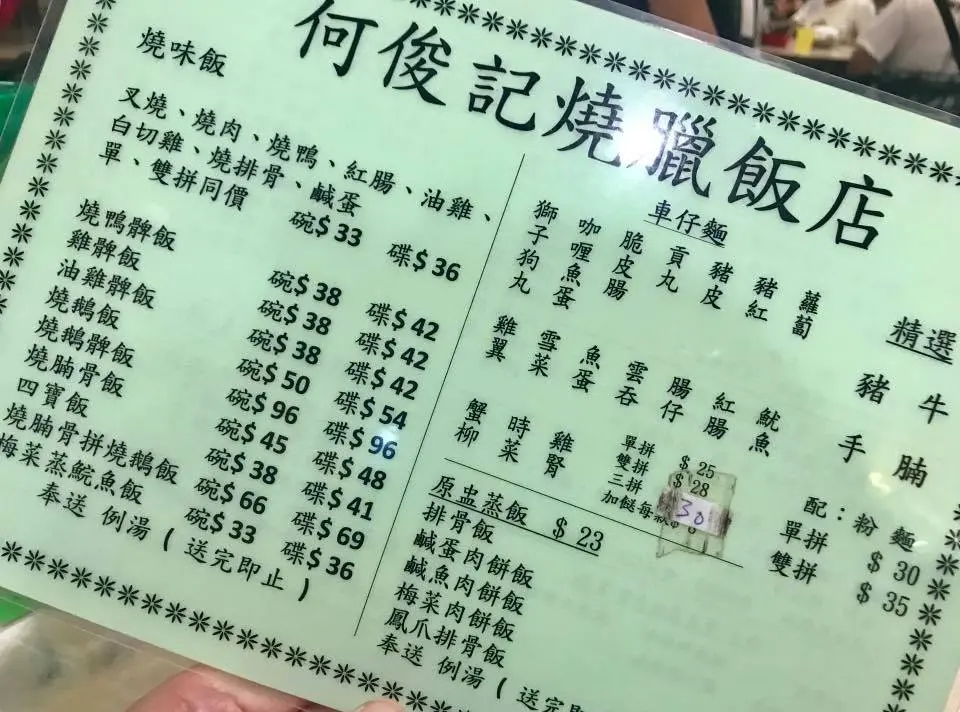 何俊記燒臘飯店
燒味飯
叉燒、燒肉、燒鴨、紅腸、油雞、
白切雞、燒排骨、鹹蛋
單、雙拼同價 碗$ 33 碟$ 36
燒鴨髀飯 碗$ 38 碟$ 42
雞髀飯 碗$ 38 碟$ 42
油雞髀飯 碗$ 38 碟$ 42
燒鵝飯 碗$ 50 碟$ 54
燒鵝髀飯 碗$ 96 碟$ 96
燒腩骨飯 碗$ 45 碟$ 48
四寶飯 碗$ 38 碟$ 41
燒腩骨拼燒鵝飯 碗$ 66 碟$ 69
梅菜蒸鯇魚飯 碗$ 33 碟$ 36
奉送 例湯 ( 送完即止 )
車仔麵
獅子狗丸 咖喱魚蛋 脆皮腸 貢丸 豬皮 豬紅 蘿蔔
雞翼 雪菜 魚蛋 雲吞 腸仔 紅腸 魷魚
蟹柳 時菜 雞腎
單拼 $ 25
雙拼 $ 28
三拼 30
加餸每
原盅蒸飯 $ 23
排骨飯
鹹蛋肉餅飯
鹹魚肉餅飯
梅菜肉餅飯
鳳爪排骨飯
奉送 例湯 ( 送完即
精選
豬手 牛腩
配：粉 麵
單拼 $ 30
雙拼 $ 35